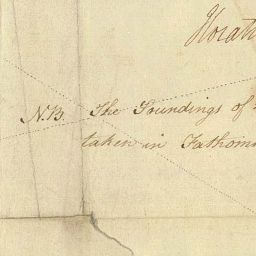 Horat
N.B. The Soundings of
taken in Fathom